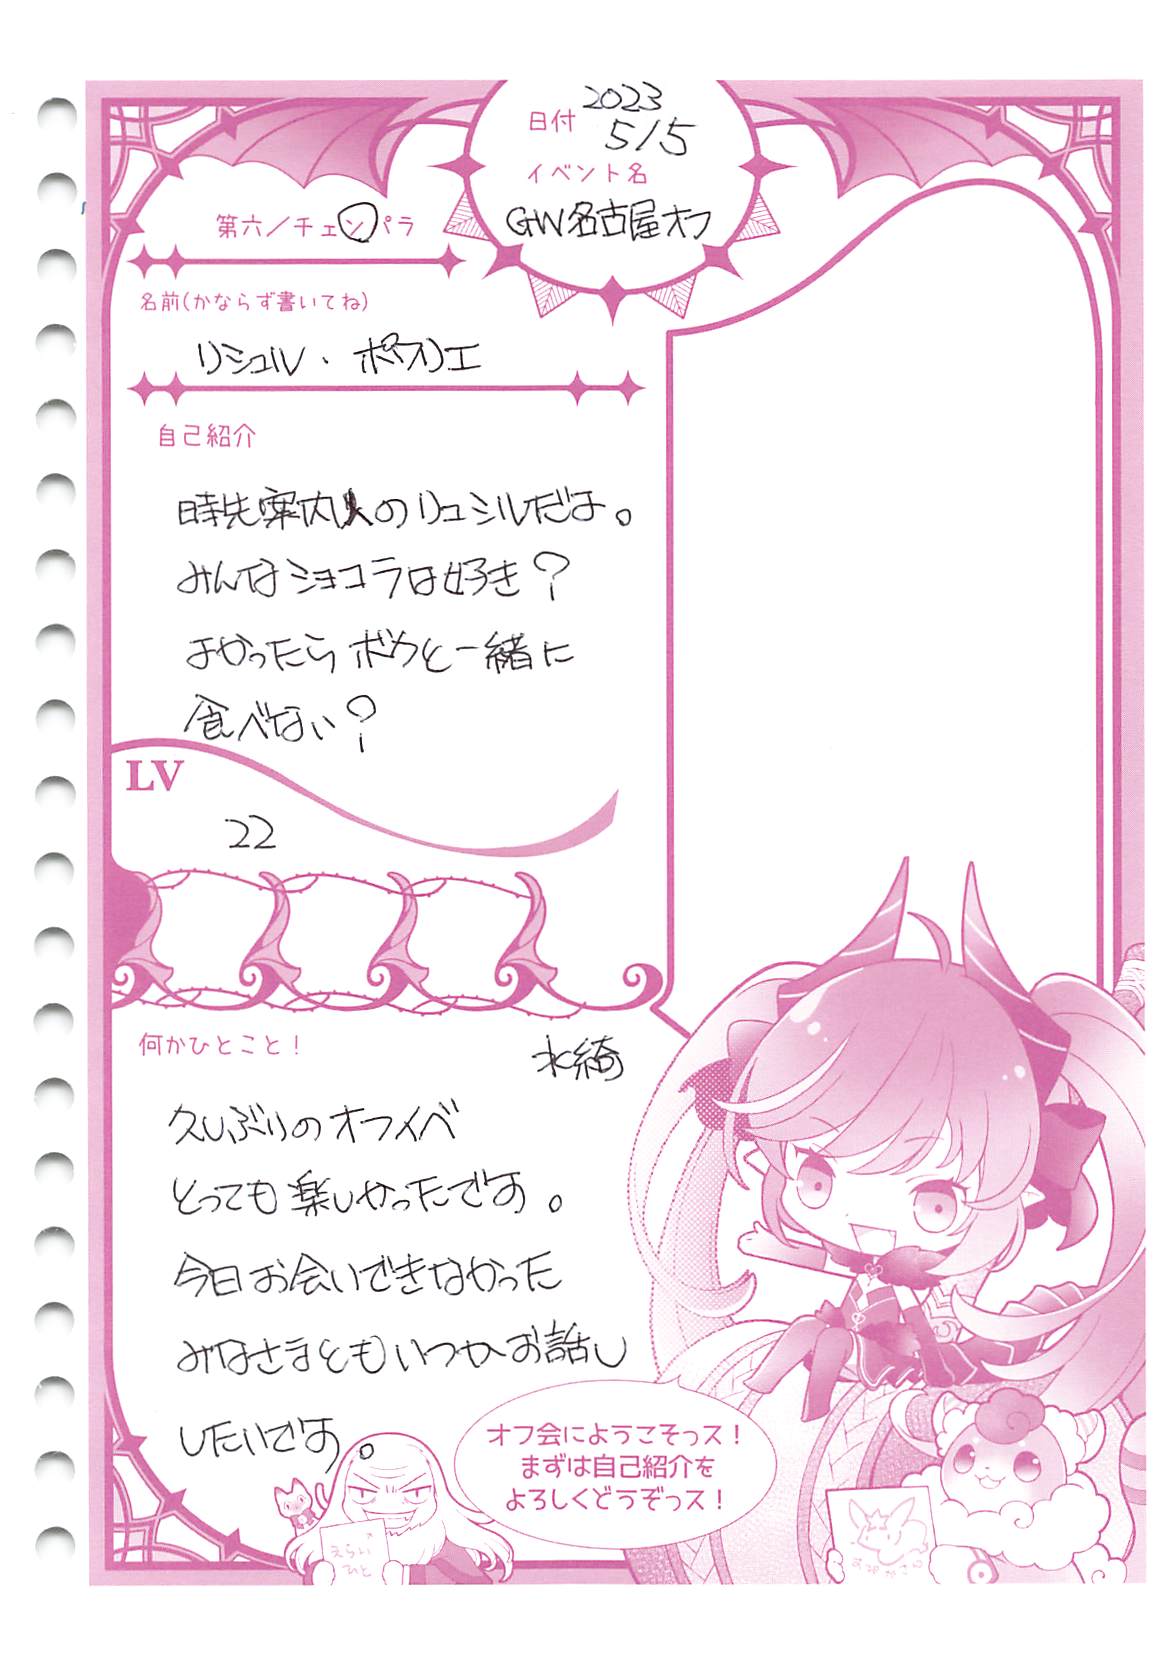 日付 2023
5/5
イベント名
GW名古屋オフ
第六/チェンパラ
名前(かならず書いてね)
リシュル・ポワリエ
自己紹介
時先案内人のリュシルだよ。
みんなショコラは好き?
よかったらボクと一緒に
食べない?
LV
22
何かひとこと!
水綺
久しぶりのオフイベ
とっても楽しかったです。
今日お会いできなかった
みなさまともいつかお話し
したいです。
オフ会にようこそっス!
まずは自己紹介を
よろしくどうぞっス!
えらい
ひと